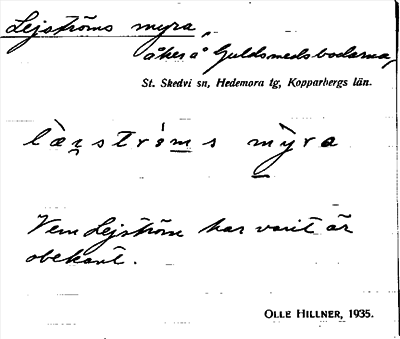 Lejströms myra,
åker å Guldsmedsbodarna,
St. Skedvi sn, Hedemora tg, Kopparbergs län.
lä̀ṇströ́ms mỳra
Vem Lejström har varit är
obekant.
OLLE HILLNER, 1935.